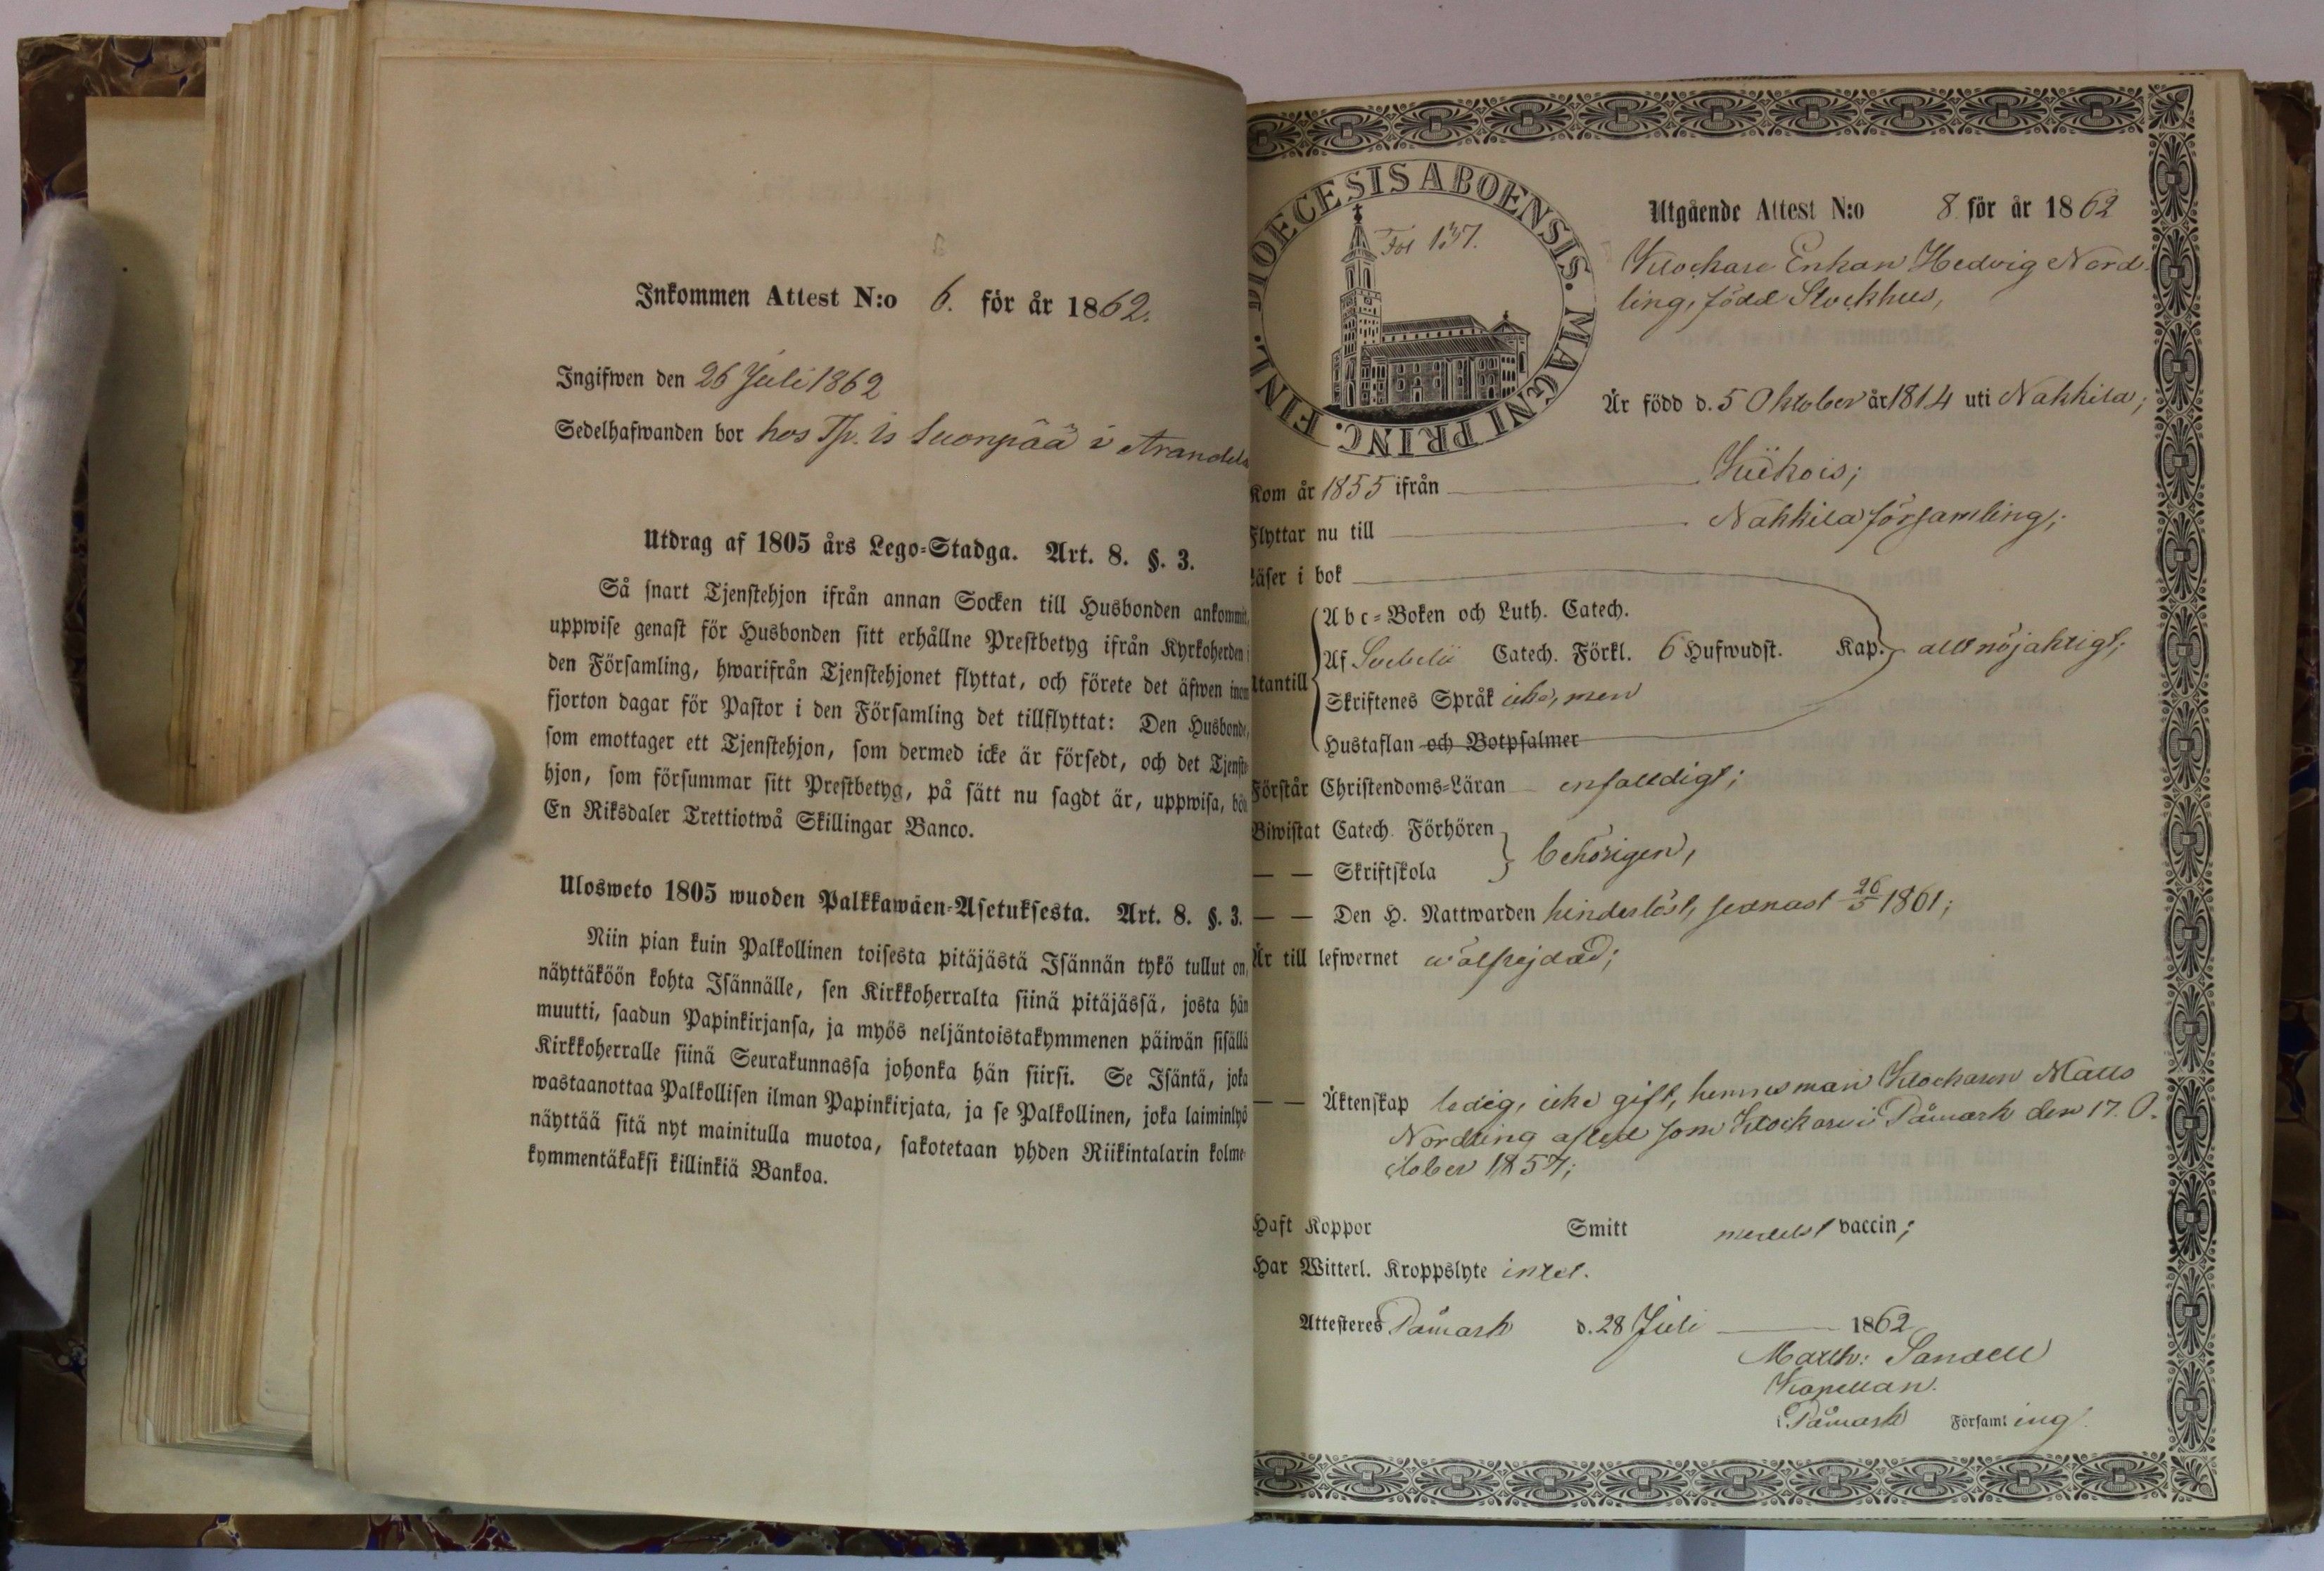 Inkommen Attest N:o 6. för år 1862.
Ingifwen den 26 Juli 1862
Sedelhafwanden bor hos Tp. is Suonpää i Arandela
Utdrag af 1805 års Lego-Stadga. Art. 8. §. 3.
Så snart Tjenstehjon ifrån annan Socken till Husbonden ankommit,
uppwise genast för Husbonden sitt erhållne Prestbetyg ifrån Kyrkoherden i
den Församling, hwarifrån Tjenstehjonet flyttat, och förete det äfwen inom
fjorton dagar för Pastor i den Församling det tillflyttat: Den Husbonde,
som emottager ett Tjenstehjon, som dermed icke är försedt, och det Tjenste-
hjon, som försummar sitt Prestbetyg, på sätt nu sagdt är, uppwisa, böte
En Riksdaler Trettiotwå Skillingar Banco.
Ulosweto 1805 wuoden Palkkawäen-Asetuksesta. Art. 8. §. 3.
Niin pian kuin Palkollinen toisesta pitäjästä Isännän tykö tullut on,
näyttäköön kohta Isännälle, sen Kirkkoherralta siinä pitäjässä, josta hän
muutti, saadun Papinkirjansa, ja myös neljäntoistakymmenen päiwän sisällä
Kirkkoherralle siinä Seurakunnassa johonka hän siirsi. Se Isäntä, joka
wastaanottaa Palkollisen ilman Papinkirjata, ja se Palkollinen, joka laiminlyö
näyttää sitä nyt mainitulla muotoa, sakotetaan yhden Riikintalarin kolme-
kymmentäkaksi killinkiä Bankoa.
DIOECESIS ABOENSIS. MAGNI PRINC. FINL.
Fol 137.
Utgående Attest N:o 8 för år 1862
Klockare Enkan Hedvig Nord-
ling, född Stockhus,
Är född d. 5 Oktober år 1814 uti Nakkila;
Kom år 1855 ifrån Kiikois;
Flyttar nu till Nakkila församling;
Läser i bok
Utantill
Abc-Boken och Luth. Catech.
Af Svebelii Catech. Förkl. 6 Hufwudst. Kap. allt nöjaktigt;
Skriftenes Språk icke, men
Hustaflan och Botpsalmer
Förstår Christendoms-Läran enfalldigt;
Biwistat Catech. Förhören
— — Skriftskola behörigen,
— — Den H. Nattwarden hinderlöst, sednast 26/5 1861;
Är till lefwernet wälfrejdad;
— — Äktenskap ledig, icke gift, hennes man Klockaren Matts
Nordling afled som Klockare i Påmark den 17. O-
ctober 1857;
Haft Koppor Smitt medelst vaccin;
Har Witterl. Kroppslyte intet.
Attesteres Påmark d. 28 Juli 1862
Matth: Sandell
Kapellan.
i Påmark Församling.